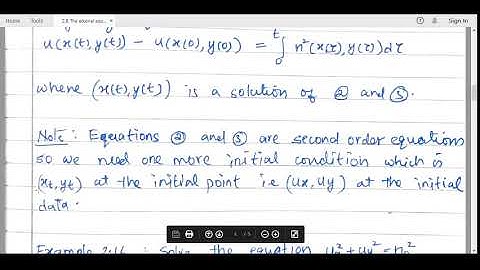 Home Tools 2.8 The eikonal equ... Sign In
u(x(t),y(t)) - u(x(0),y(0)) = ∫₀ᵗ n²(x(τ),y(τ))dτ
where (x(t),y(t)) is a solution of ② and ③.
Note: Equations ② and ③ are second order equations
so we need one more initial condition which is
(xt,yt) at the initial point i.e (ux,uy) at the initial
data.
Example 2.16 : Solve the equation ux²+uy²=n0²